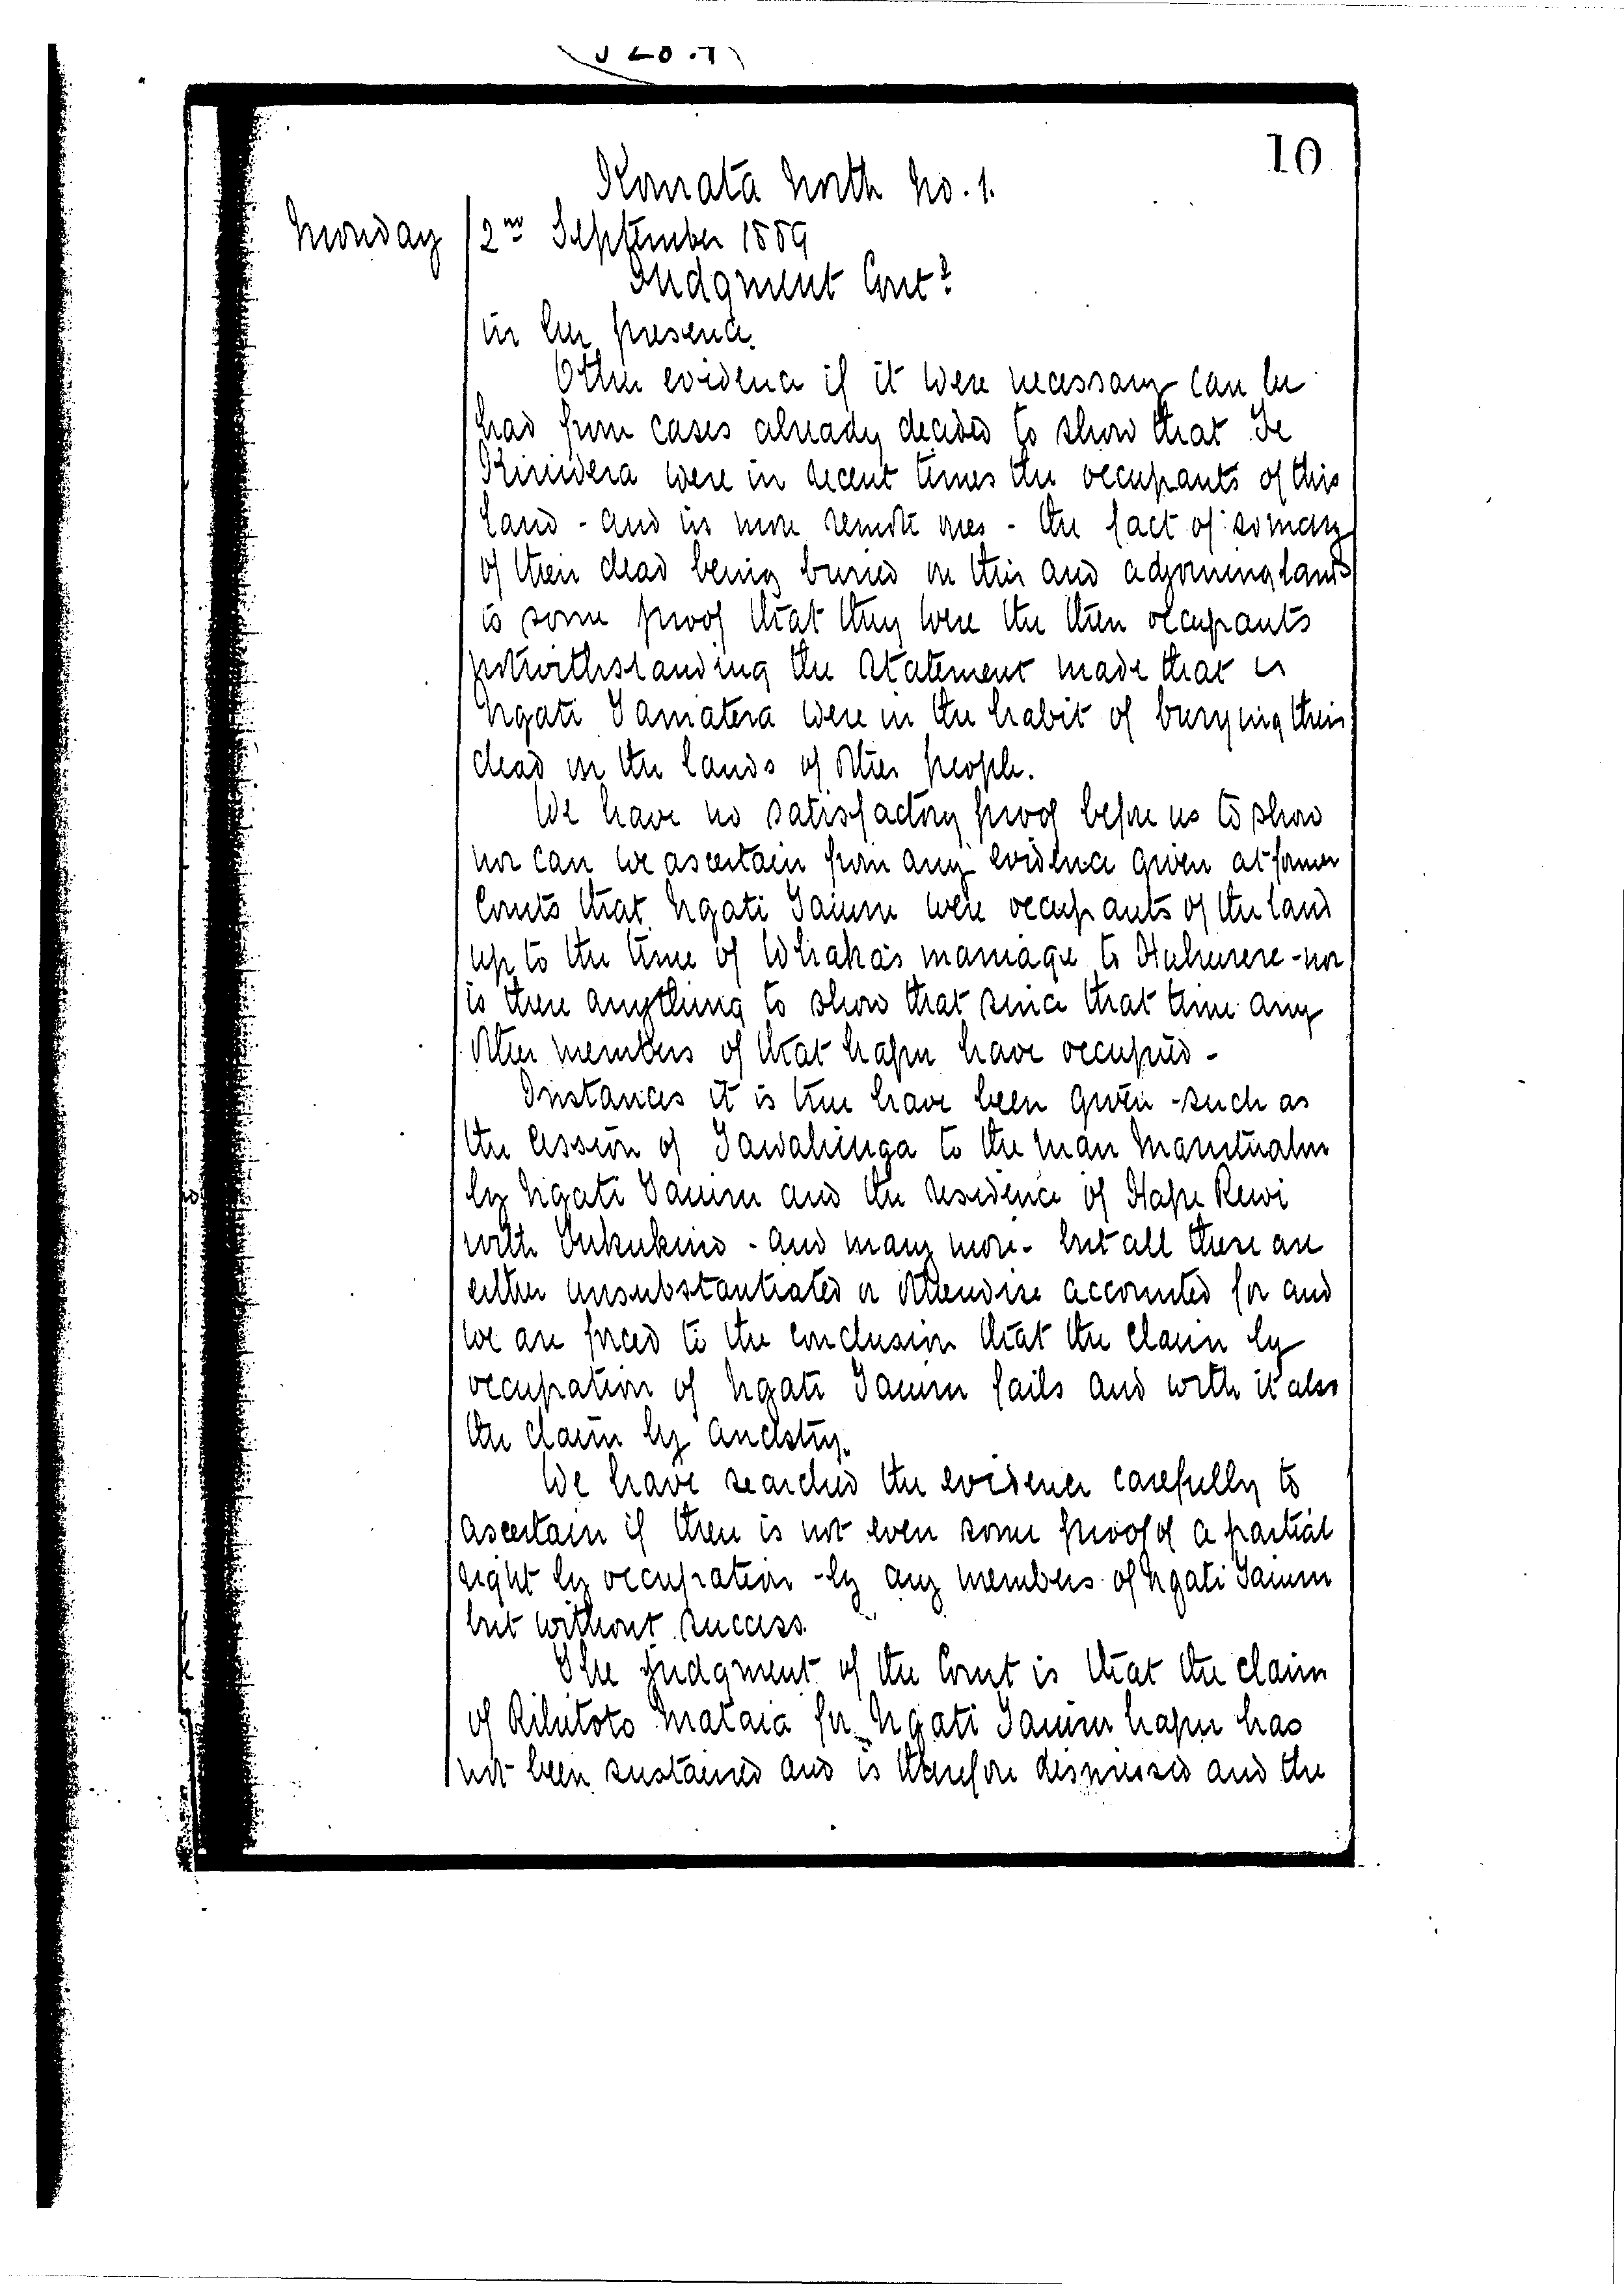 10
Komata North No. 1.
Monday 2nd September 1889
Judgment Contd
in her presence.
Other evidence if it were necessary can be
had from cases already decided to show that Te
Kiriwera were in recent times the occupants of this
land - and in more remote ones - the fact of so many
of their dead being buried on this and adjoining lands
is some proof that they were the then occupants
notwithstanding the statement made that
Ngati Tamatera were in the habit of burying their
dead in the lands of other people.
We have no satisfactory proof before us to show
nor can we ascertain from any evidence given at former
Courts that Ngati Taumu were occupants of the land
up to the time of Whaka's marriage to - nor
is there anything to show that since that time any
other members of that hapu have occupied -
Instances it is true have been given - such as
the cession of Tawahinga to the man
by Ngati Taumu and the residence of Hape Rewi
with Tukukino - and many more - but all these are
either unsubstantiated or otherwise accounted for and
we are forced to the conclusion that the claim by
occupation of Ngati Taumu fails and with it also
the claim by ancestry.
We have searched the evidence carefully to
ascertain if there is not even some proof of a partial
right by occupation - by any members of Ngati Taumu
but without success.
The judgment of the Court is that the claim
of Rihitoto Mataia for Ngati Taumu hapu has
not been sustained and is therefore dismissed and the